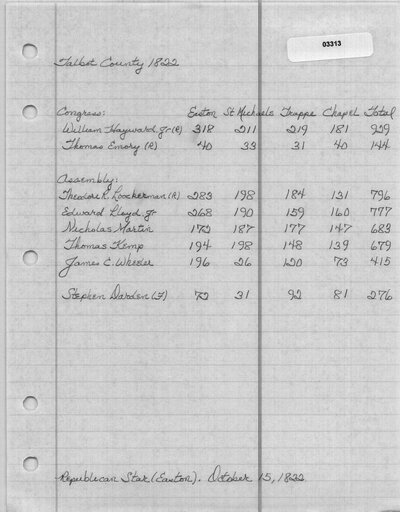 03313
Talbot County 1822
Congress: Easton St Michaels Trappe Chapel Total
William Hayward Jr (R) 318 211 219 181 929
Thomas Emory (R) 40 33 31 40 144
Assembly:
Theodore R. Loockerman (R) 283 198 184 131 796
Edward Lloyd Jr 268 190 159 160 777
Nicholas Martin 172 187 177 147 683
Thomas Kemp 194 198 148 139 679
James C. Wheeler 196 26 120 73 415
Stephen Darden (F) 72 31 92 81 276
Republican Star (Easton). October 15, 1822